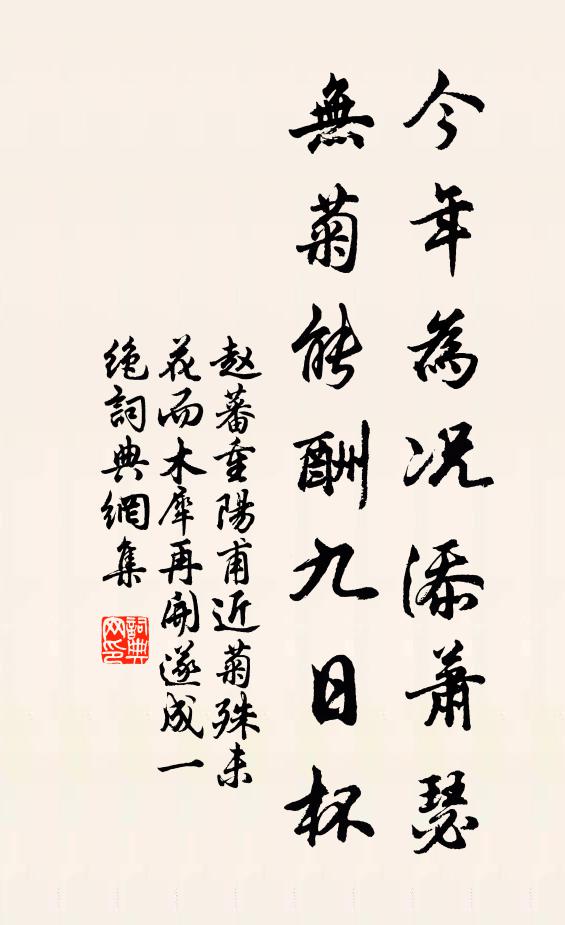 今年為况添蕭瑟
無菊能酬九日杯
赵蕃重陽甫近菊殊未
花而木犀再開遂成一
绝詞典網集
詞典网印